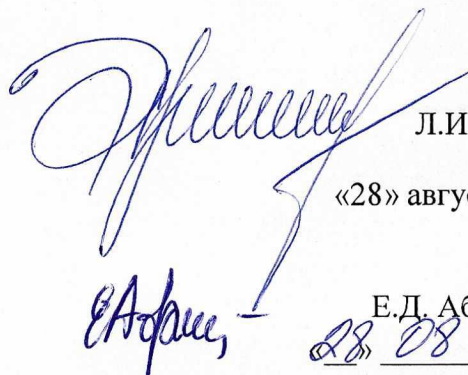 Л.И
«28» авгус
Е.Д. Аб
«28» 08